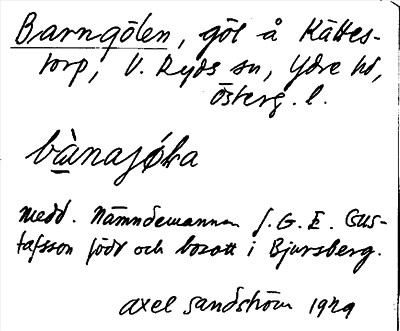 Barngölen, göl å Kättes-
torp, V. Ryds sn, Ydre hd,
Österg. l.
bànajøka
medd. Nämndemannen J. G. E. Gus-
tafsson född och bosatt i Bjursberg.
Axel Sandström 1929